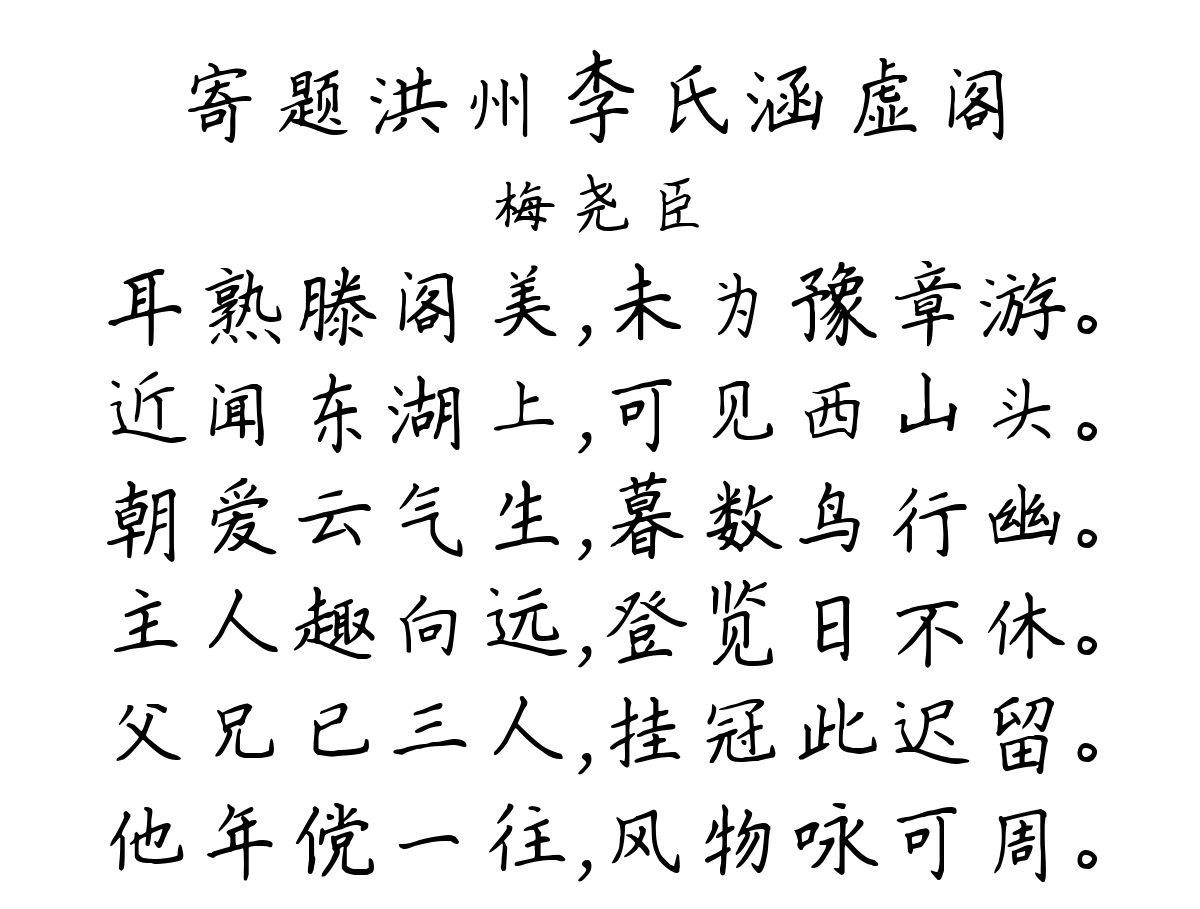 寄题洪州李氏涵虚阁
梅尧臣
耳熟滕阁美,未为豫章游。
近闻东湖上,可见西山头。
朝爱云气生,暮数鸟行幽。
主人趣向远,登览日不休。
父兄已三人,挂冠此迟留。
他年傥一往,风物咏可周。